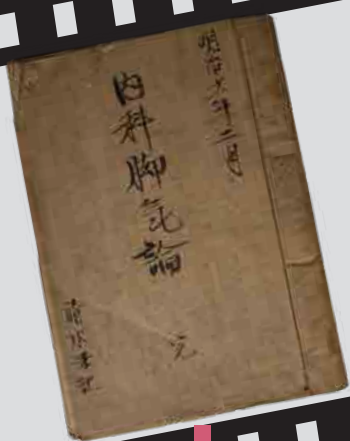 明治十年二月
内科脚気論
完